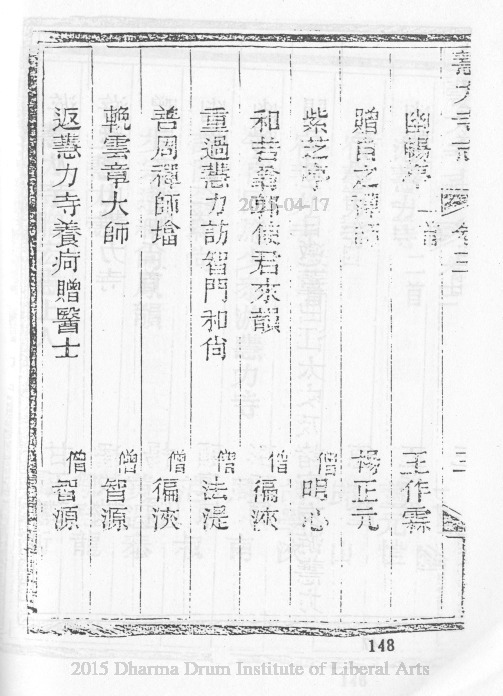 慧力寺志 卷三 三
幽暢亭 二首 王作霖
贈自之禪師 楊正元
紫芝亭 僧明心
和苦翁郭使君來韻 僧徧浹
重過慧力訪智門和尚 僧法湜
善周禪師塔 僧徧浹
輓雲章大師 僧智源
返慧力寺養疴贈醫士 僧智源
148
2015-04-17
2015 Dharma Drum Institute of Liberal Arts